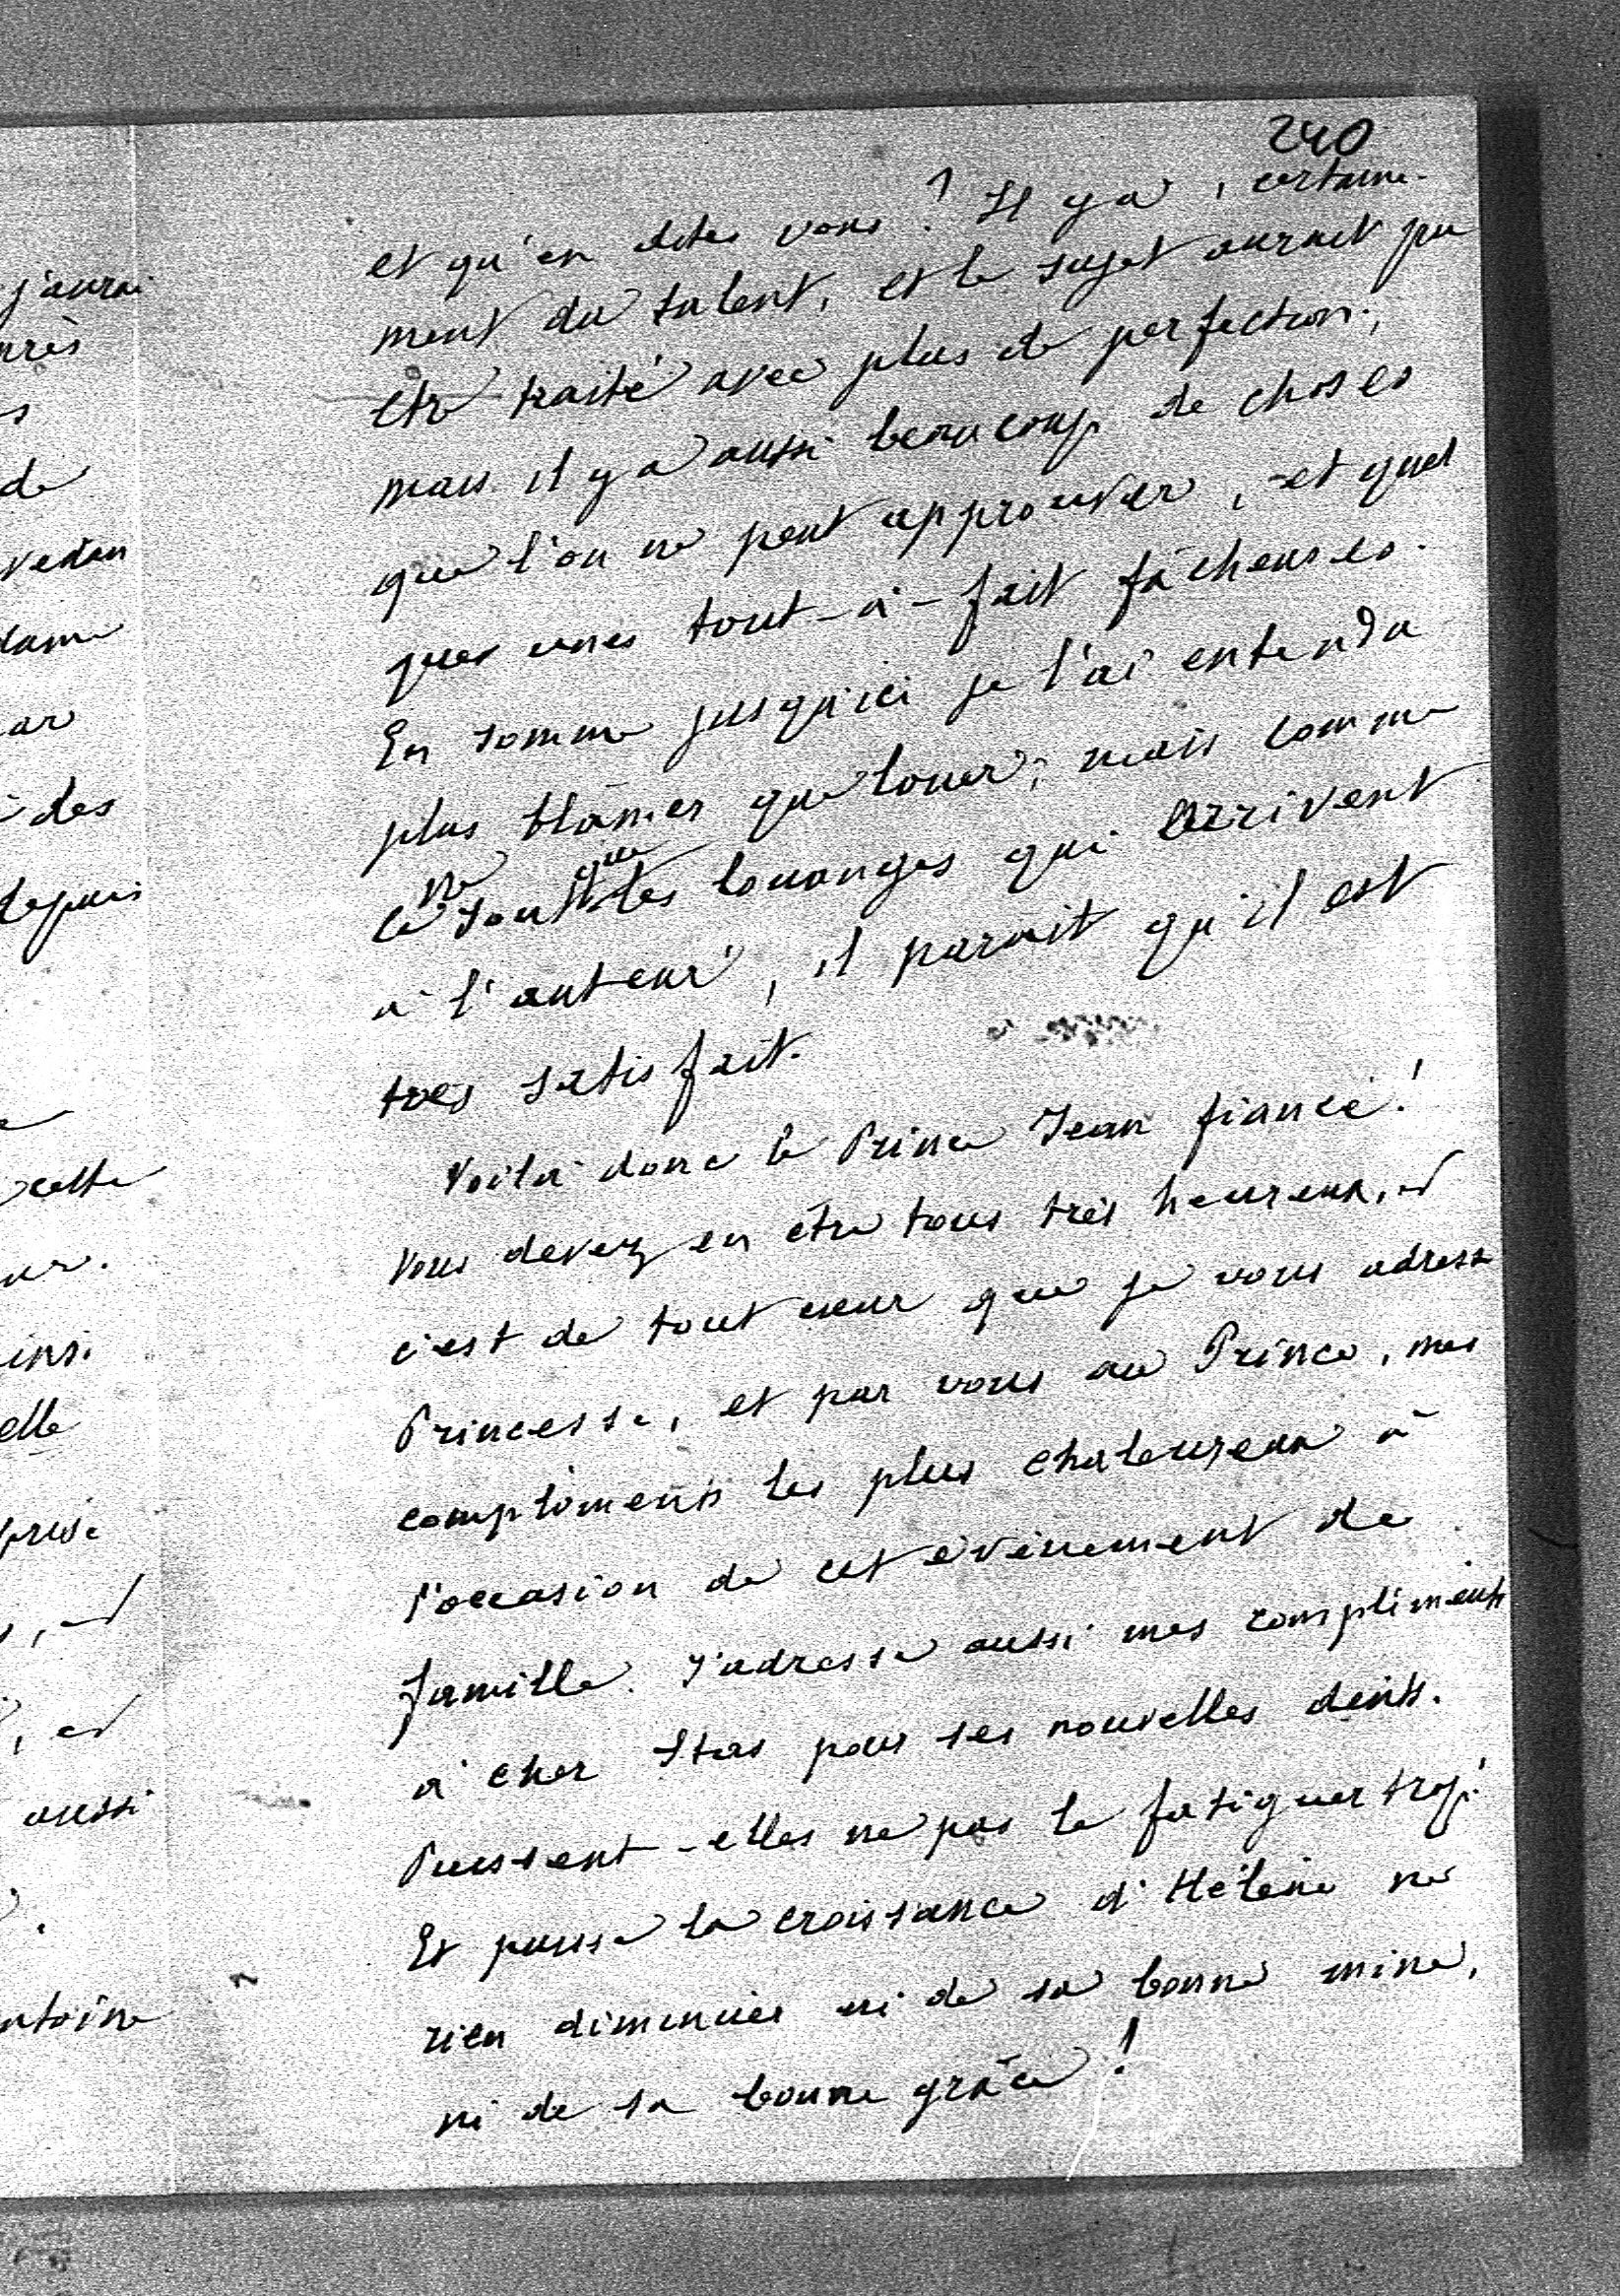 240
et qu'en dites vous ? Il y a, certaine-
ment du talent, et le sujet aurait pu
être traité avec plus de perfection;
mais il y a aussi beaucoup de choses
que l'on ne peut approuver, et quel
ques unes tout-à-fait fâcheuses.
En somme jusqu'ici je l'ai entendu
plus blâmer que louer; mais comme
ce ne sont que les louanges qui arrivent
à l'auteur, il parait qu'il est
très satisfait.
Voilà donc le Prince Jean fiancé!
Vous devez en être tous très heureux, et
c'est de tout cœur que je vous adresse
Princesse, et par vous au Prince, mes
compliments les plus chaleureux à
l'occasion de cet évènement de
famille. J'adresse aussi mes compliments
à cher Stas pour ses nouvelles dents.
Puissent-elles ne pas le fatiguer trop!
Et puisse la croissance d'Hélène ne
rien diminuer ni de sa bonne mine,
ni de sa bonne grâce!
j'aurai
de
des
depuis
cette
elle
aussi